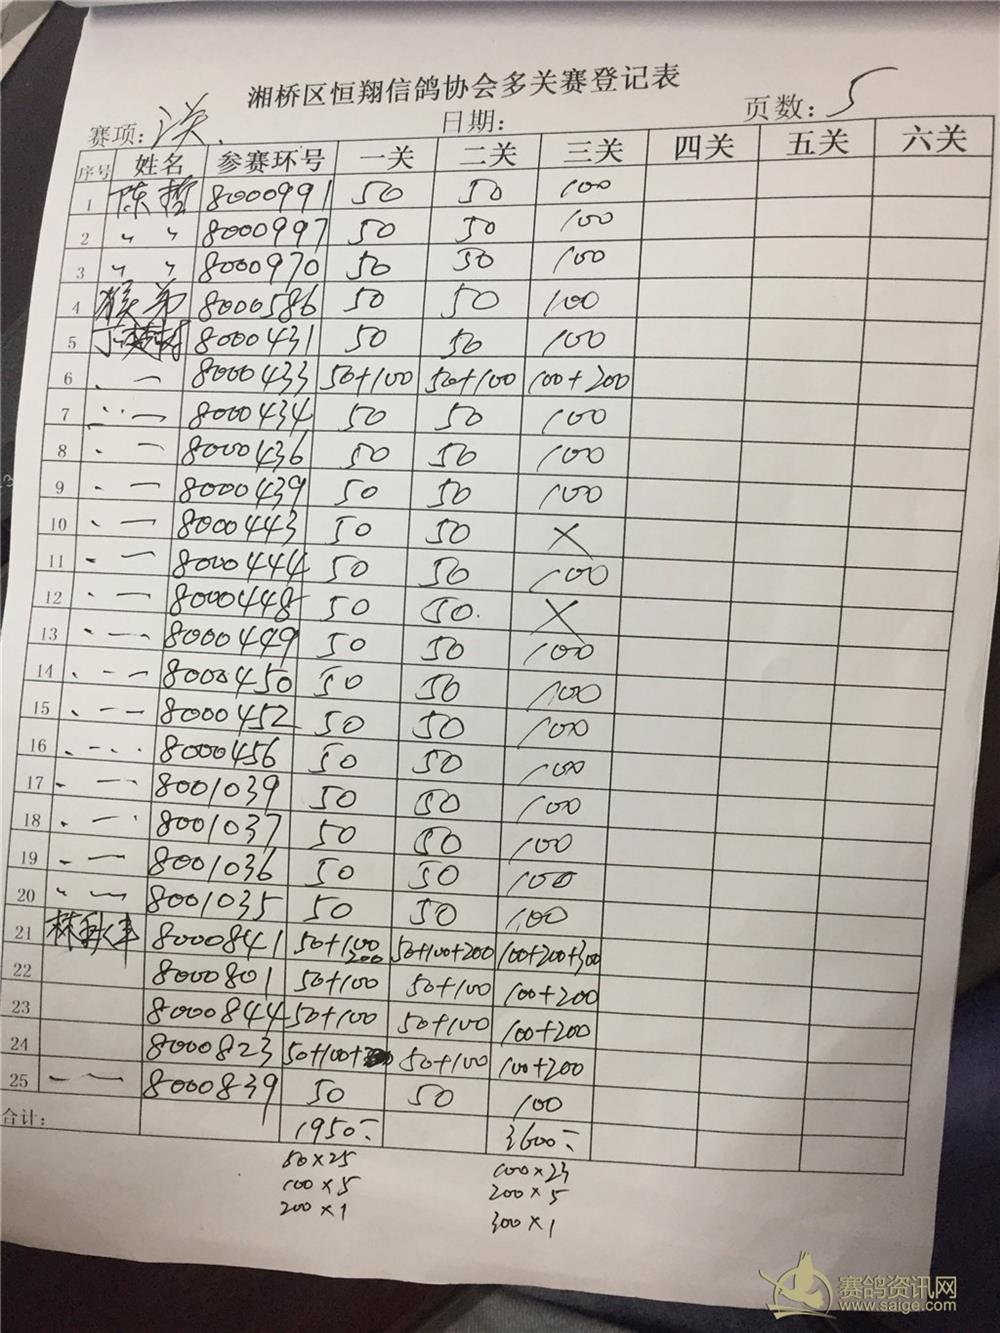 湘桥区恒翔信鸽协会多关赛登记表
赛项: 决 日期: 页数: 5
序号 姓名 参赛环号 一关 二关 三关 四关 五关 六关
1 陈哲 8000991 50 50 100
2 〃 〃 8000997 50 50 100
3 〃 〃 8000970 50 50 100
4 猴弟 8000586 50 50 100
5 8000431 50 50 100
6 8000433 50+100 50+100 100+200
7 8000434 50 50 100
8 8000436 50 50 100
9 8000439 50 50 100
10 8000443 50 50 ×
11 8000444 50 50 100
12 8000448 50 50. ×
13 8000449 50 50 100
14 8000450 50 50 100
15 8000452 50 50 100
16 8000456 50 50 100
17 8001039 50 50 100
18 8001037 50 50 100
19 8001036 50 50 100
20 8001035 50 50 100
21 8000841 50+100 200 50+100+200 100+200+300
22 8000801 50+100 50+100 100+200
23 8000844 50+100 50+100 100+200
24 8000823 50+100+ 50+100 100+200
25 8000839 50 50 100
合计: 1950 3600
50×25 100×23
100×5 200×5
200×1 300×1
赛鸽资讯网
www.saige.com